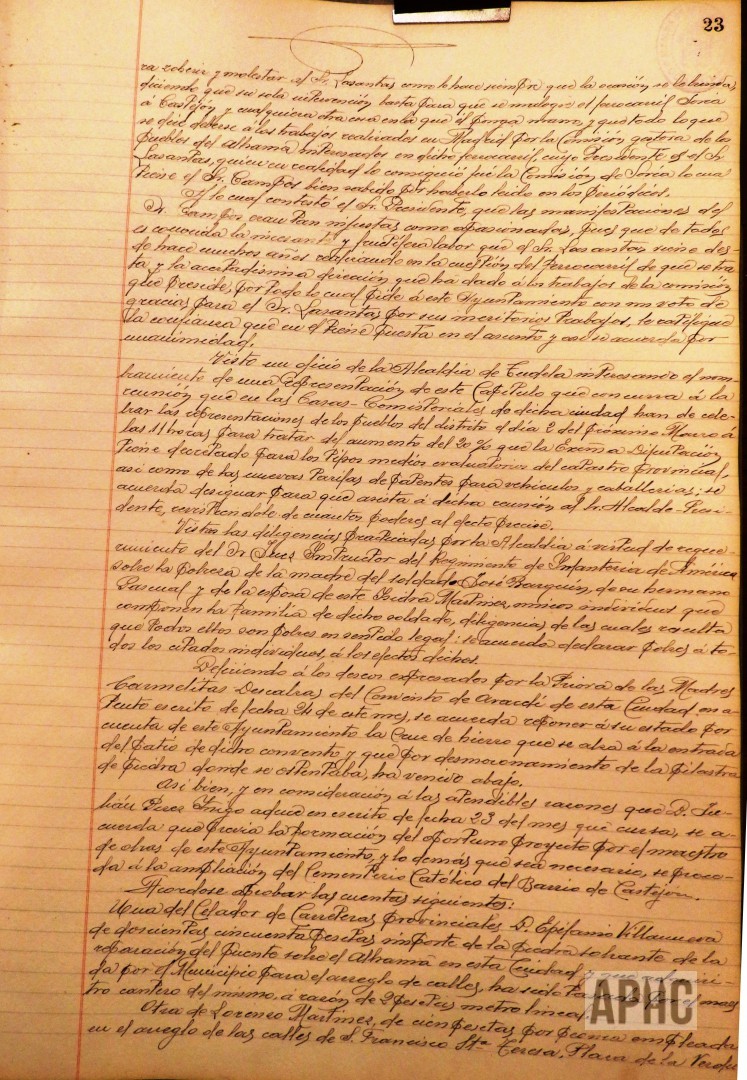 23
ra zaherir y molestar al Sr. Lasantas como lo hace siempre que la ocasión se le brinda,
diciendo que su sola intervención basta para que se malogre el ferrocarril Soria
á Castejón y cualquiera otra cosa en la que él ponga mano, y que todo lo que
se dice deberse á los trabajos realizados en Madrid por la Comisión gestora de los
pueblos del Alhama interesados en dicho ferrocarril, cuyo Presidente es el Sr.
Lasantas, quien en realidad lo consiguió fué la Comisión de Soria lo cual
tiene el Sr. Campos bien sabido por haberlo leido en los periódicos.
A lo cual contestó el Sr. Presidente, que las manifestaciones del
Sr. Campos, eran tan injustas como apasionadas, pues que de todos
es conocida la incesante y fructífera labor que el Sr. Lasantas viene des-
de hace muchos años realizando en la cuestión del ferrocarril de que se tra-
ta, y la acertadísima dirección que ha dado á los trabajos de la comisión
que preside, por todo lo cual pide á este Ayuntamiento con un voto de
gracias para el Sr. Lasanta por sus meritorios trabajos, le ratifique
la confianza que en él tiene puesta en el asunto y así se acuerda por
unanimidad.
Visto un oficio de la Alcaldía de Tudela interesando el nom-
bramiento de una representación de este Cabildo que concurra á la
reunión que en las Casas-Consistoriales de dicha ciudad han de cele-
brar las representaciones de los pueblos del distrito el día 2 del próximo Marzo á
las 11 horas para tratar del aumento del 20 % que la Excma Diputación
tiene decretado para los tipos medios evaluatorios del catastro provincial,
así como de las nuevas tarifas de patentes para vehículos y caballerías; se
acuerda designar para que asista á dicha reunión al Sr. Alcalde-Presi-
dente, revistiéndole de cuantos poderes al efecto precise.
Vistas las diligencias practicadas por la Alcaldía á virtud de reque-
rimiento del Sr. Juez Instructor del Regimiento de Infantería de América
sobre la pobreza de la madre del soldado José Barquín, de su hermano
Pascual y de la esposa de este Isidra Martinez, únicos individuos que
componen la familia de dicho soldado, diligencias de las cuales resulta
que todos ellos son pobres en sentido legal: se acuerda declarar pobres á to-
dos los citados individuos, á los efectos dichos.
Defiriendo á los deseos expresados por la Priora de las Madres
Carmelitas Descalzas del Convento de Araceli de esta Ciudad en a-
tento escrito de fecha 24 de este mes, se acuerda reponer á su estado por
cuenta de este Ayuntamiento la Cruz de hierro que se alza á la entrada
del patio de dicho convento y que por desmoronamiento de la pilastra
de piedra donde se ostentaba, ha venido abajo.
Así bien, y en consideración á las atendibles razones que D. Ju-
lián Perez Iñigo aduce en escrito de fecha 23 del mes que cursa, se a-
cuerda que previa la formación del oportuno proyecto por el maestro
de obras de este Ayuntamiento, y lo demás que sea necesario, se proce-
da á la ampliación del Cementerio Católico del Barrio de Castejón.
Acordóse aprobar las cuentas siguientes:
Una del Celador de Carreteras provinciales D. Epifanio Villanueva
de doscientas cincuenta pesetas importe de la piedra sobrante de la
reparación del puente sobre el Alhama en esta Ciudad y que
da por el Municipio para el arreglo de calles, ha sido por el maes-
tro cantero del mismo, á razón de 2 pesetas metro lineal.
Otra de Lorenzo Martinez, de cien pesetas por piedra empleada
en el arreglo de las calles de S. Francisco, Sta Teresa, Plaza de la Verdu
APHC